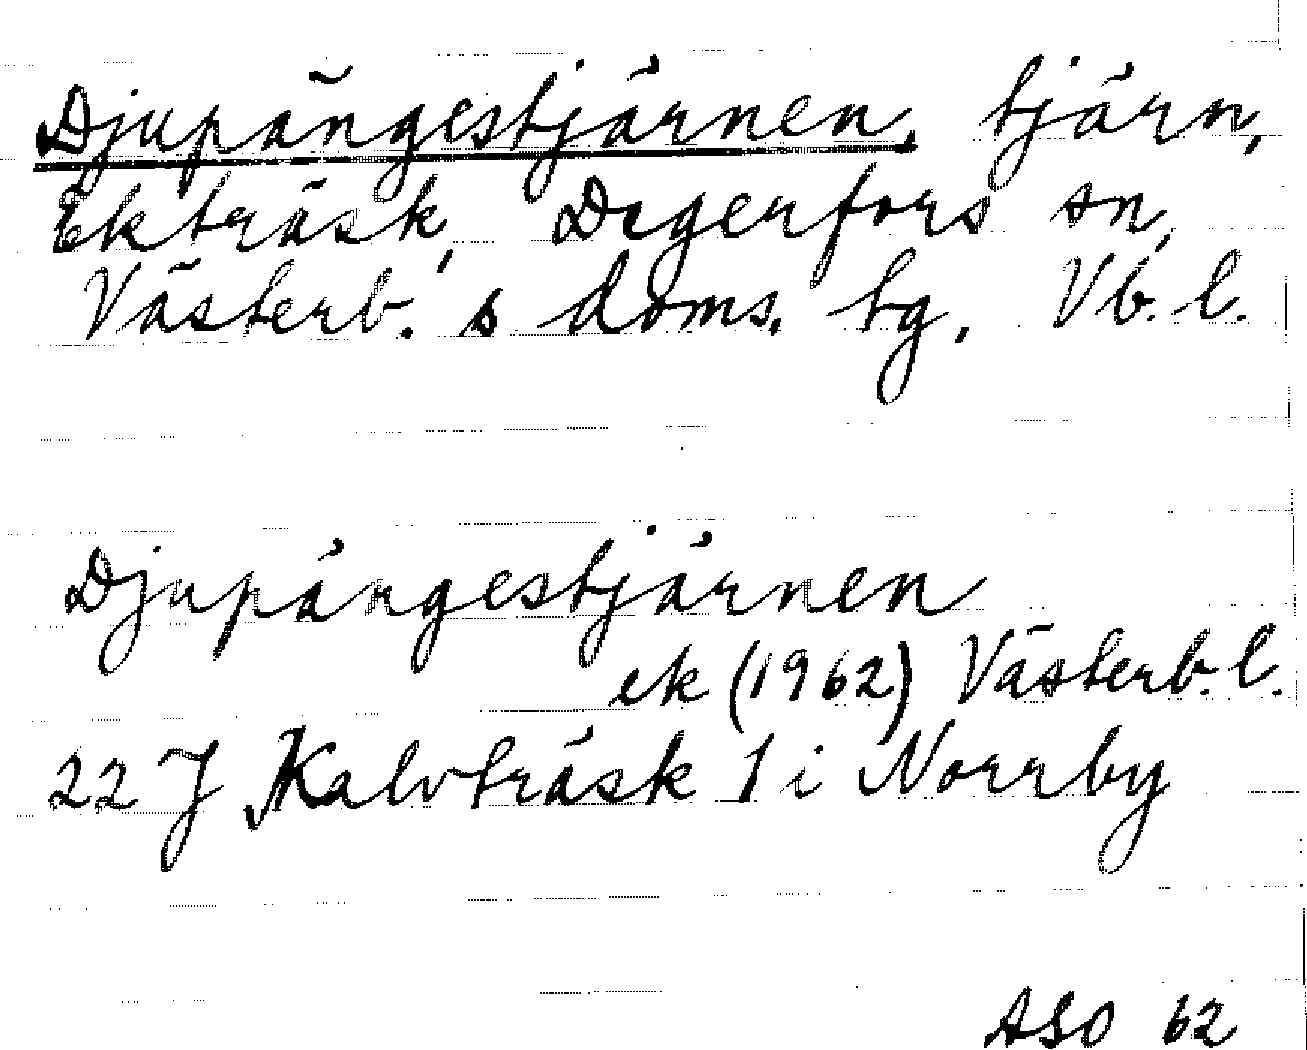 Djupängestjärnen, tjärn,
Ekträsk, Degerfors sn,
Västerb. s doms. tg. Vb. l.
Djupängestjärnen
ek (1962) Västerb. l.
22 J Kalvträsk 1 i Norrby
ASO 62